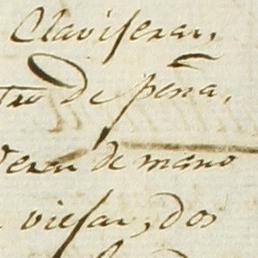 Claviseran.
tro de peña,
veran de mano
viejas, dos